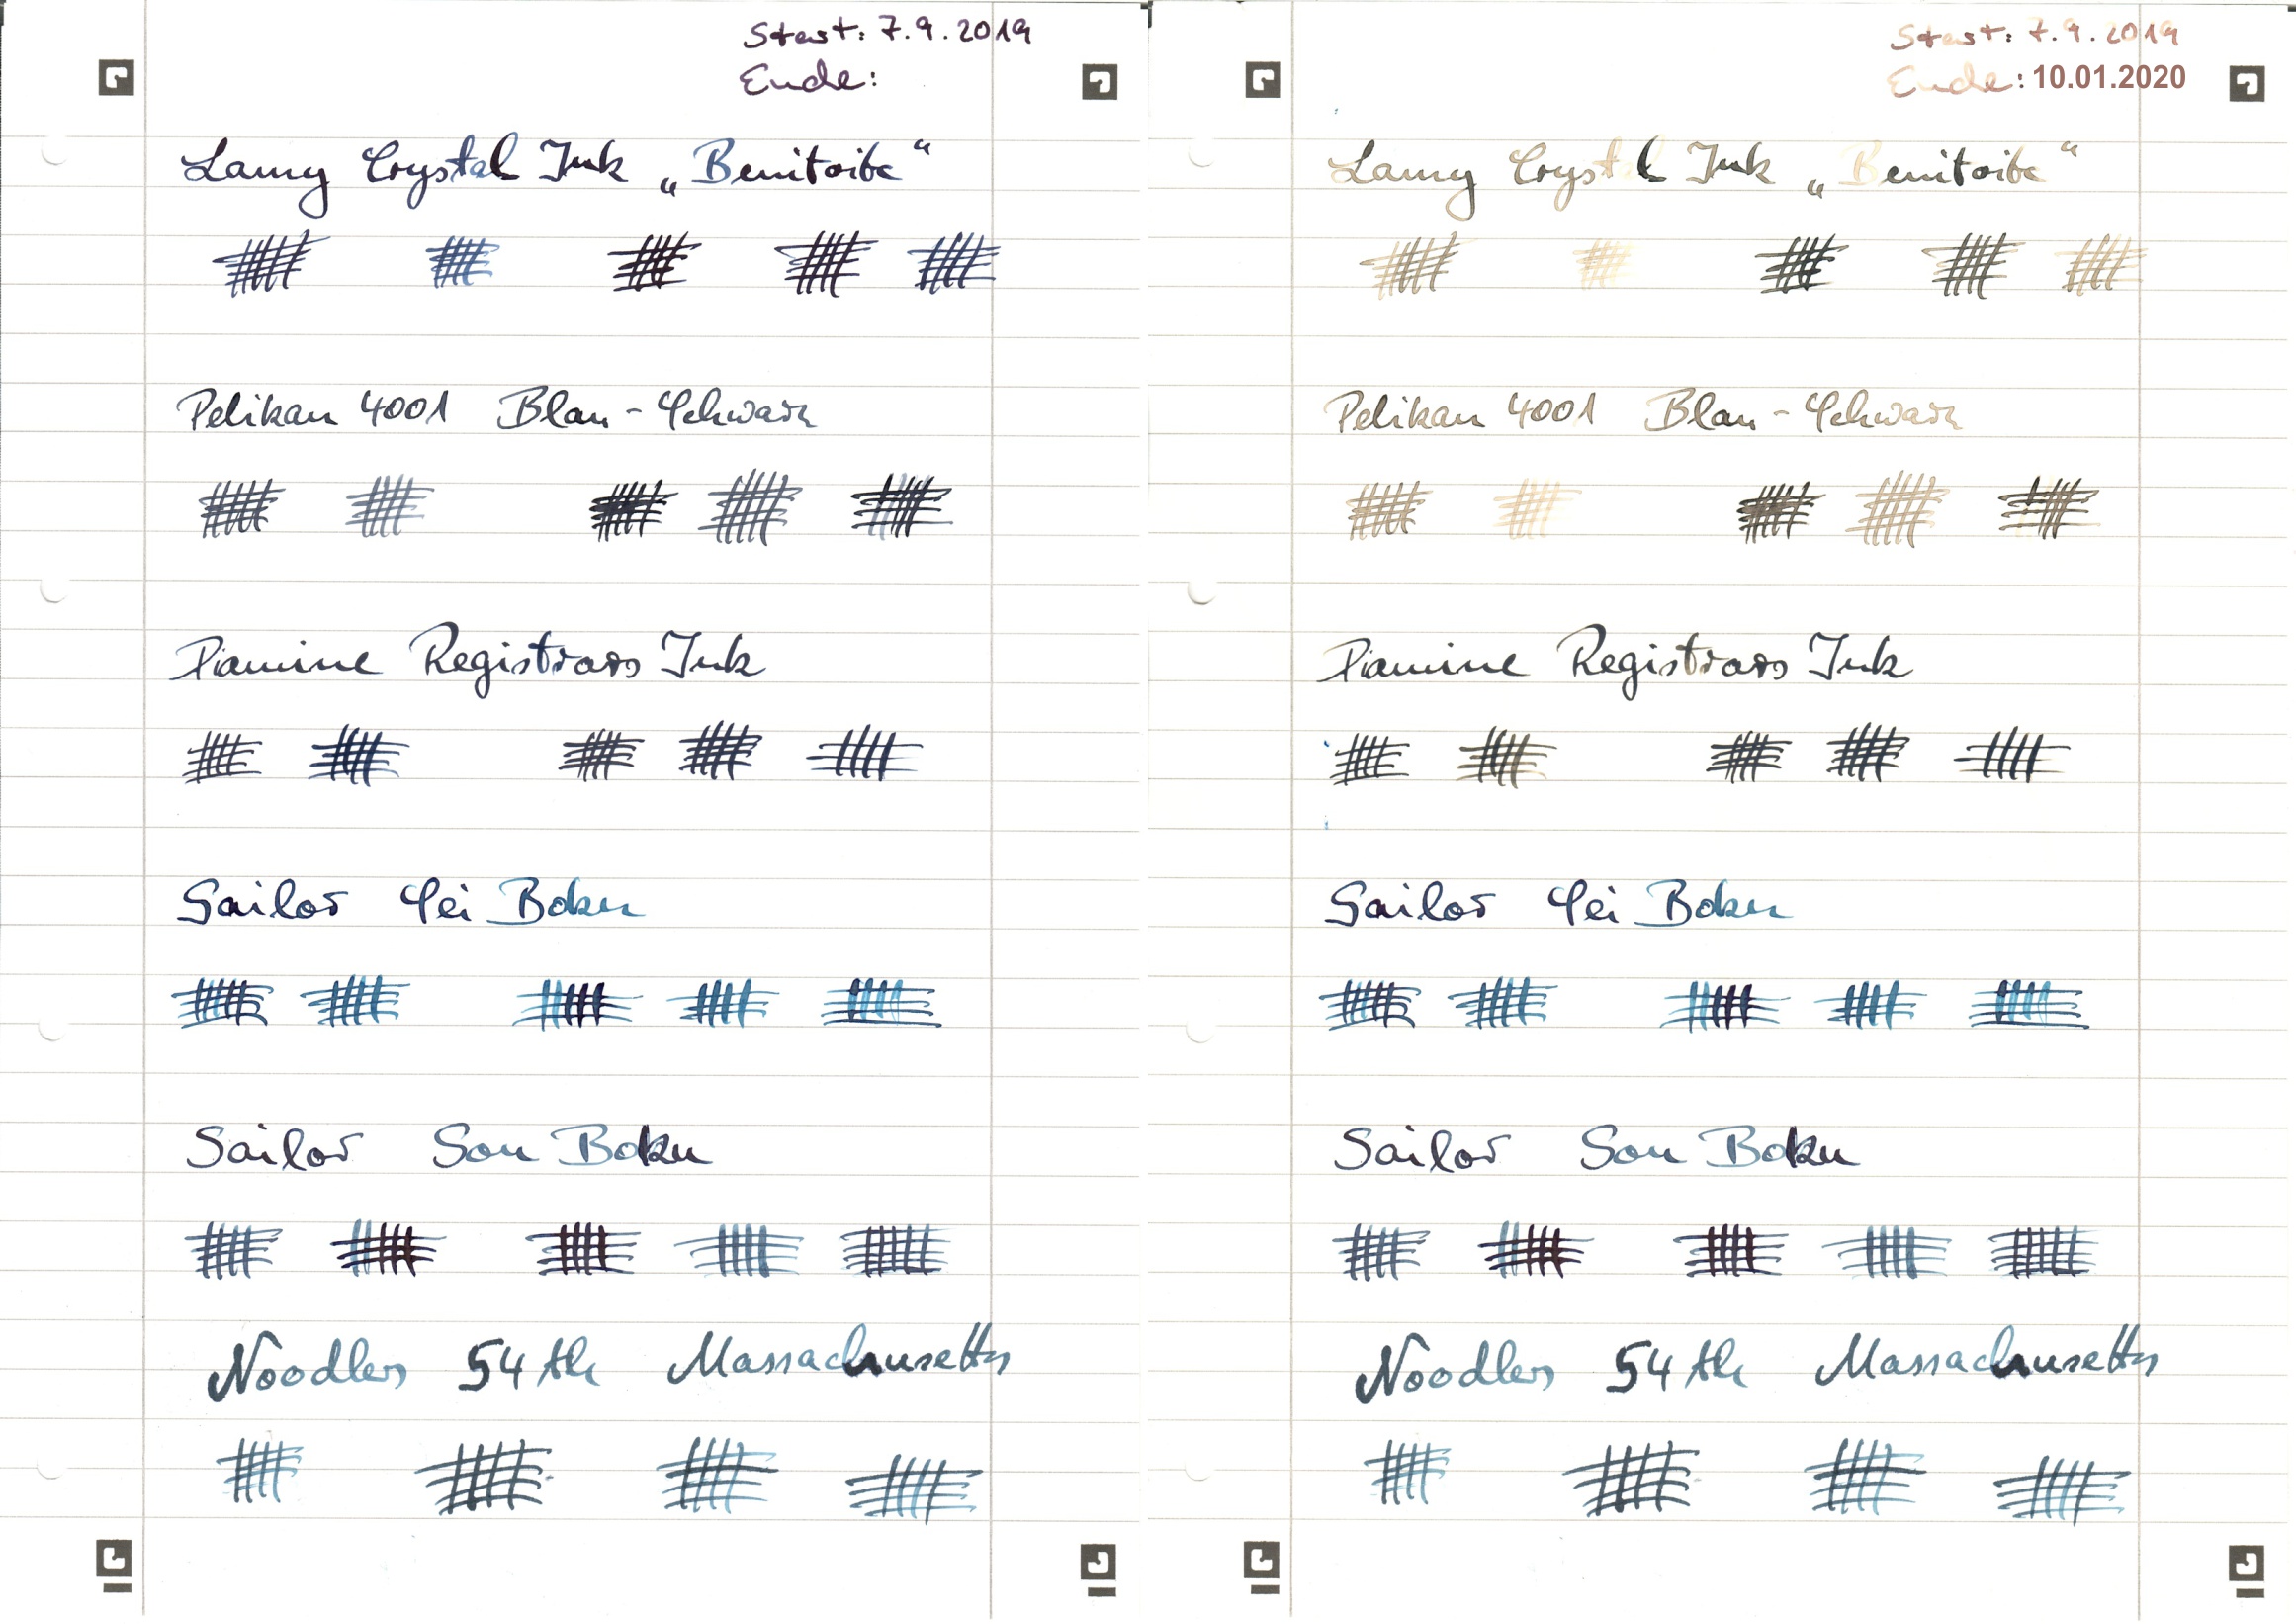 Start: 7.9.2019
Ende:
Lamy Crystal Ink „Benitoite“
Pelikan 4001 Blau-Schwarz
Diamine Registrars Ink
Sailor Sei Boku
Sailor Sou Boku
Noodlers 54th Massachusetts
Start: 7.9.2019
Ende: 10.01.2020
Lamy Crystal Ink „Benitoite“
Pelikan 4001 Blau-Schwarz
Diamine Registrars Ink
Sailor Sei Boku
Sailor Sou Boku
Noodlers 54th Massachusetts